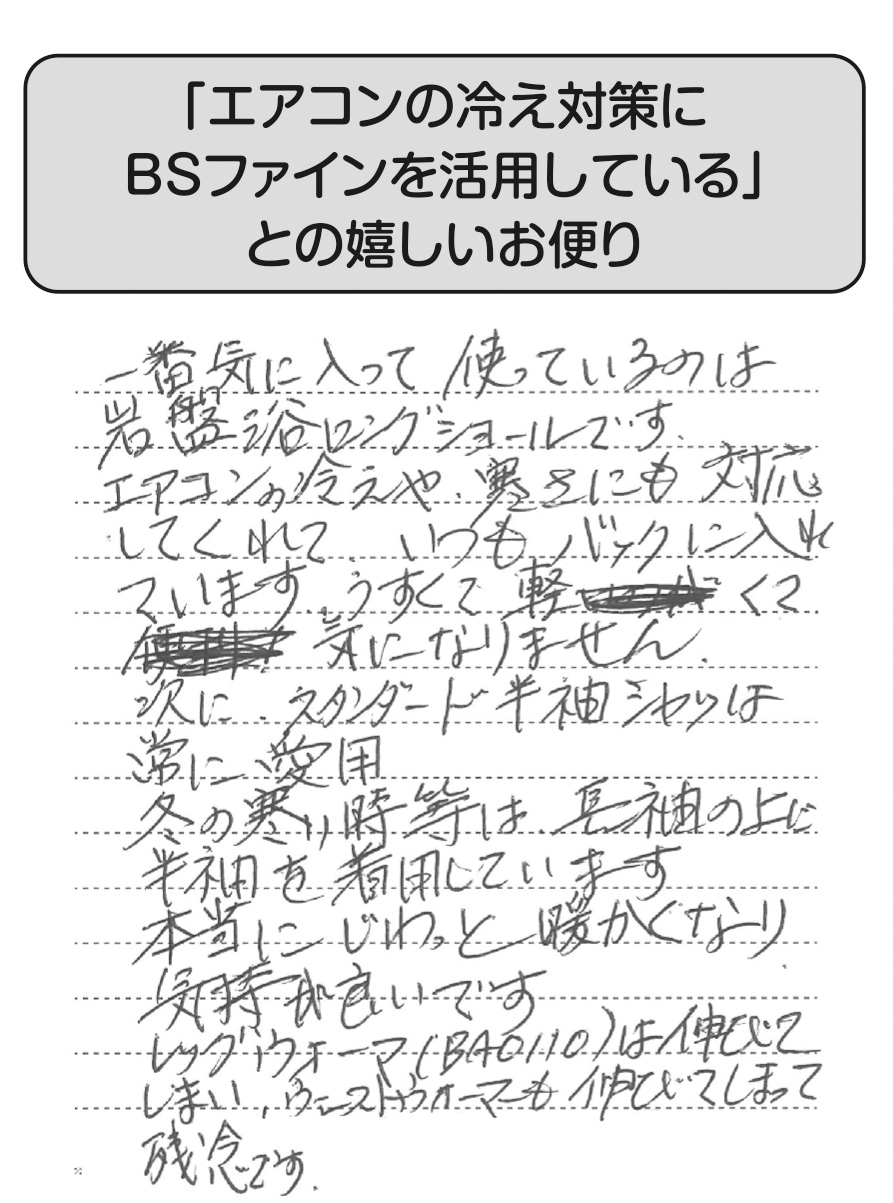 「エアコンの冷え対策に
BSファインを活用している」
との嬉しいお便り
一番気に入って使っているのは
岩盤浴ロングショールです.
エアコンの冷えや、寒さにも対応
してくれて、いつもバックに入れ
ています、うすくて軽くて
気になりません.
次に、スタンダード半袖シャツは
常に愛用
冬の寒い時等は、長袖の上に
半袖を着用しています
本当にじわっと暖かくなり
気持が良いです
レッグウォーマ(BA0110)は伸びて
しまい、ウエストウォーマーも伸びてしまって
残念です.